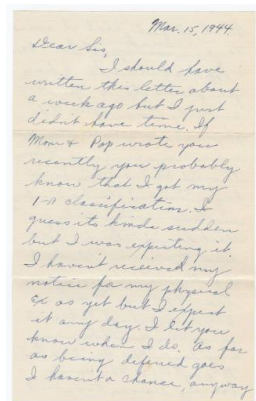 Mar. 15, 1944
Dear Sis,
I should have
written this letter about
a week ago but I just
didn't have time. If
Mom & Pop wrote you
recently you probably
know that I got my
1-A classification. I
guess its kinda sudden
but I was expecting it.
I haven't received my
notice for my physical
Ex as yet but I expect
it any day. I let you
know when I do. As far
as being defered goes
I havent a chance, anyway